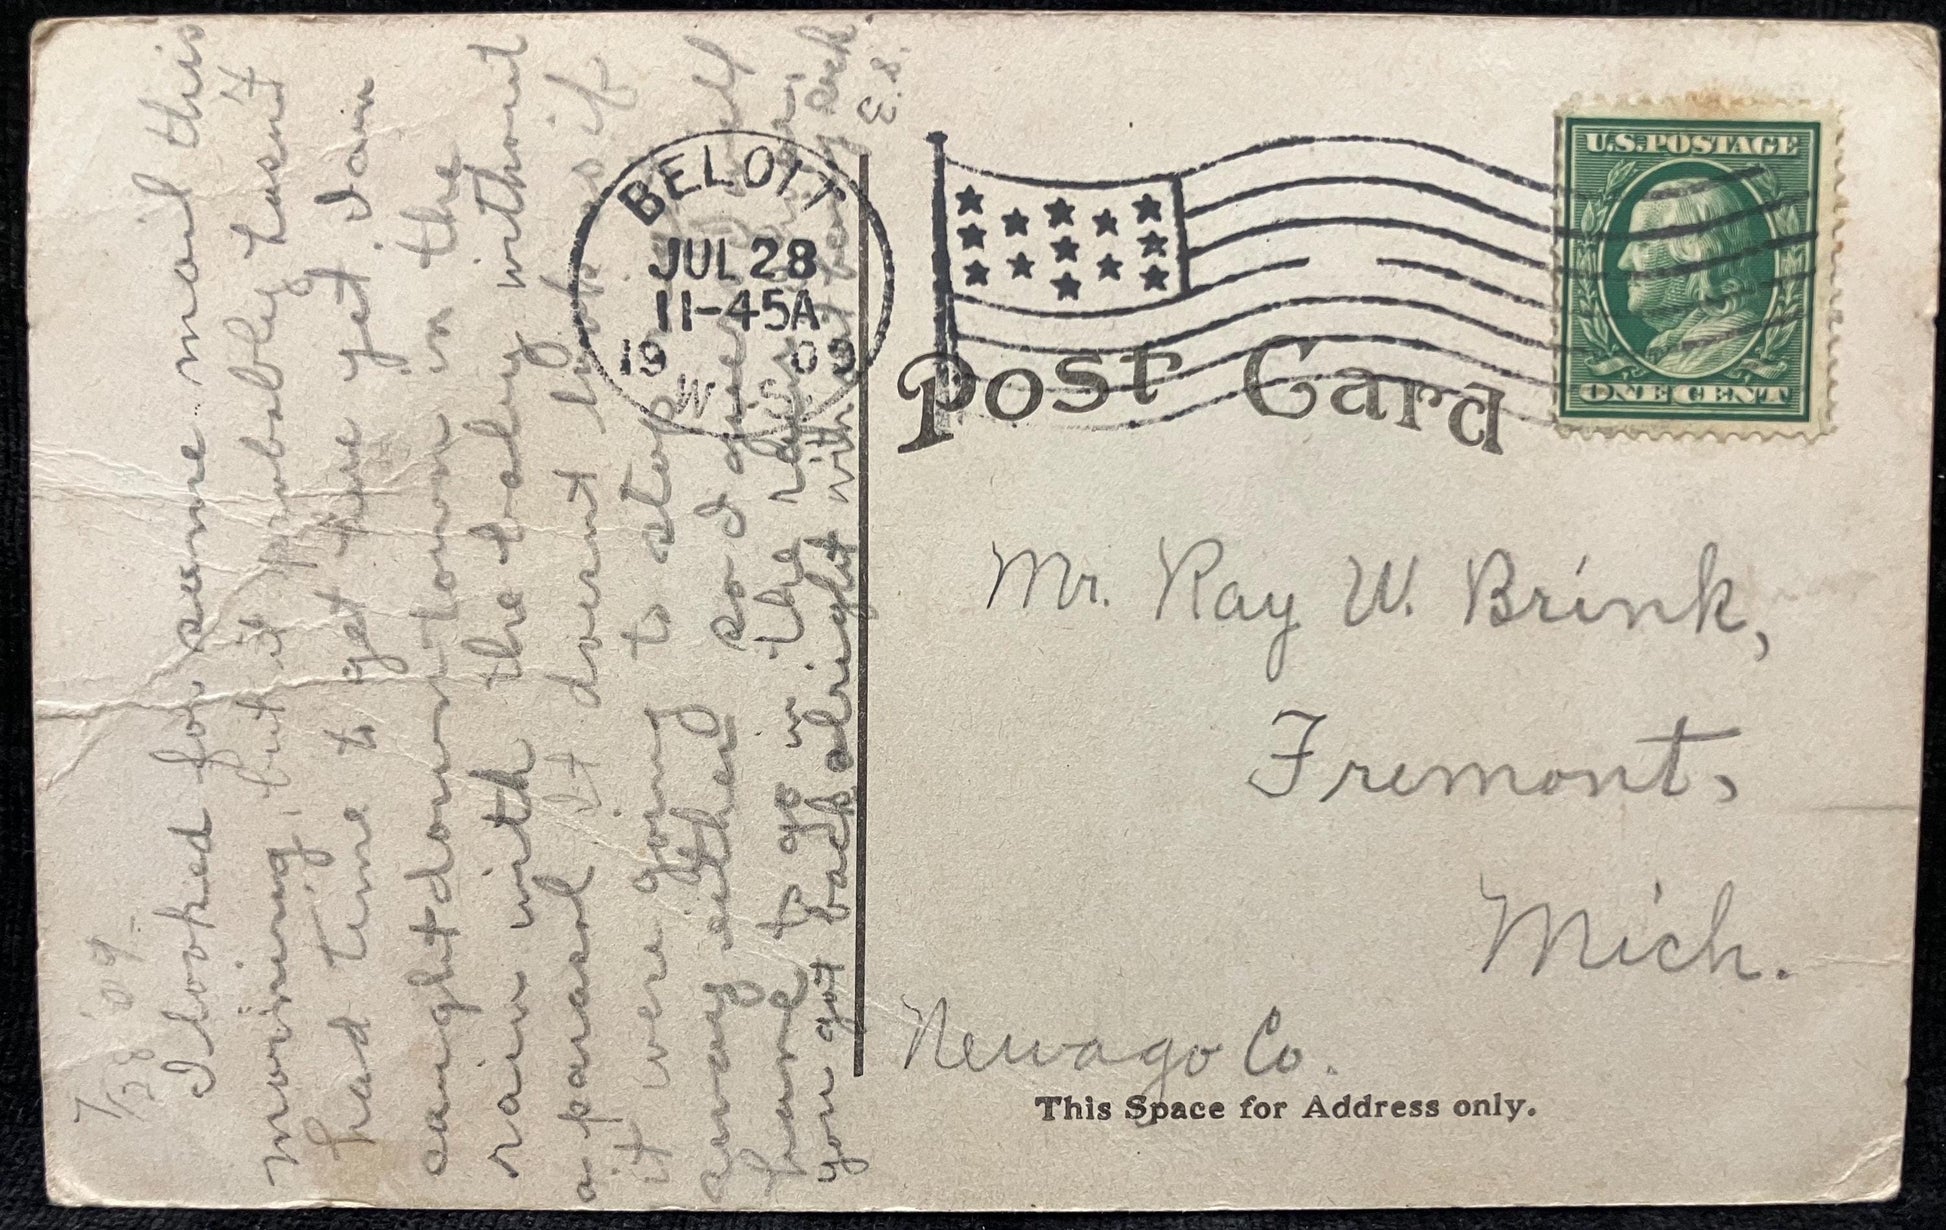 7/28 '09.
I looked for some mail this
morning, but it probably hasn't
had time to get here yet. I am
caught down town in the
rain with the baby without
a parasol. It doesnt look as if
it were going to stop
away either so I guess I
have to go in the rain
you got back alright with out being sick
E.S.
BELOIT
JUL 28
11-45A
1909
WIS.
U.S.POSTAGE
ONE CENT
Post Card
Mr. Ray W. Brink,
Fremont,
Mich.
Newago Co.
This Space for Address only.